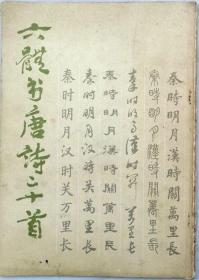 秦時明月漢時關萬里長
秦時明月漢時關萬里長
秦時明月漢時関萬里長
秦時明月漢時關萬里長
秦時明月漢时关萬里長
秦时明月汉时关万里长
六體书唐詩二十首